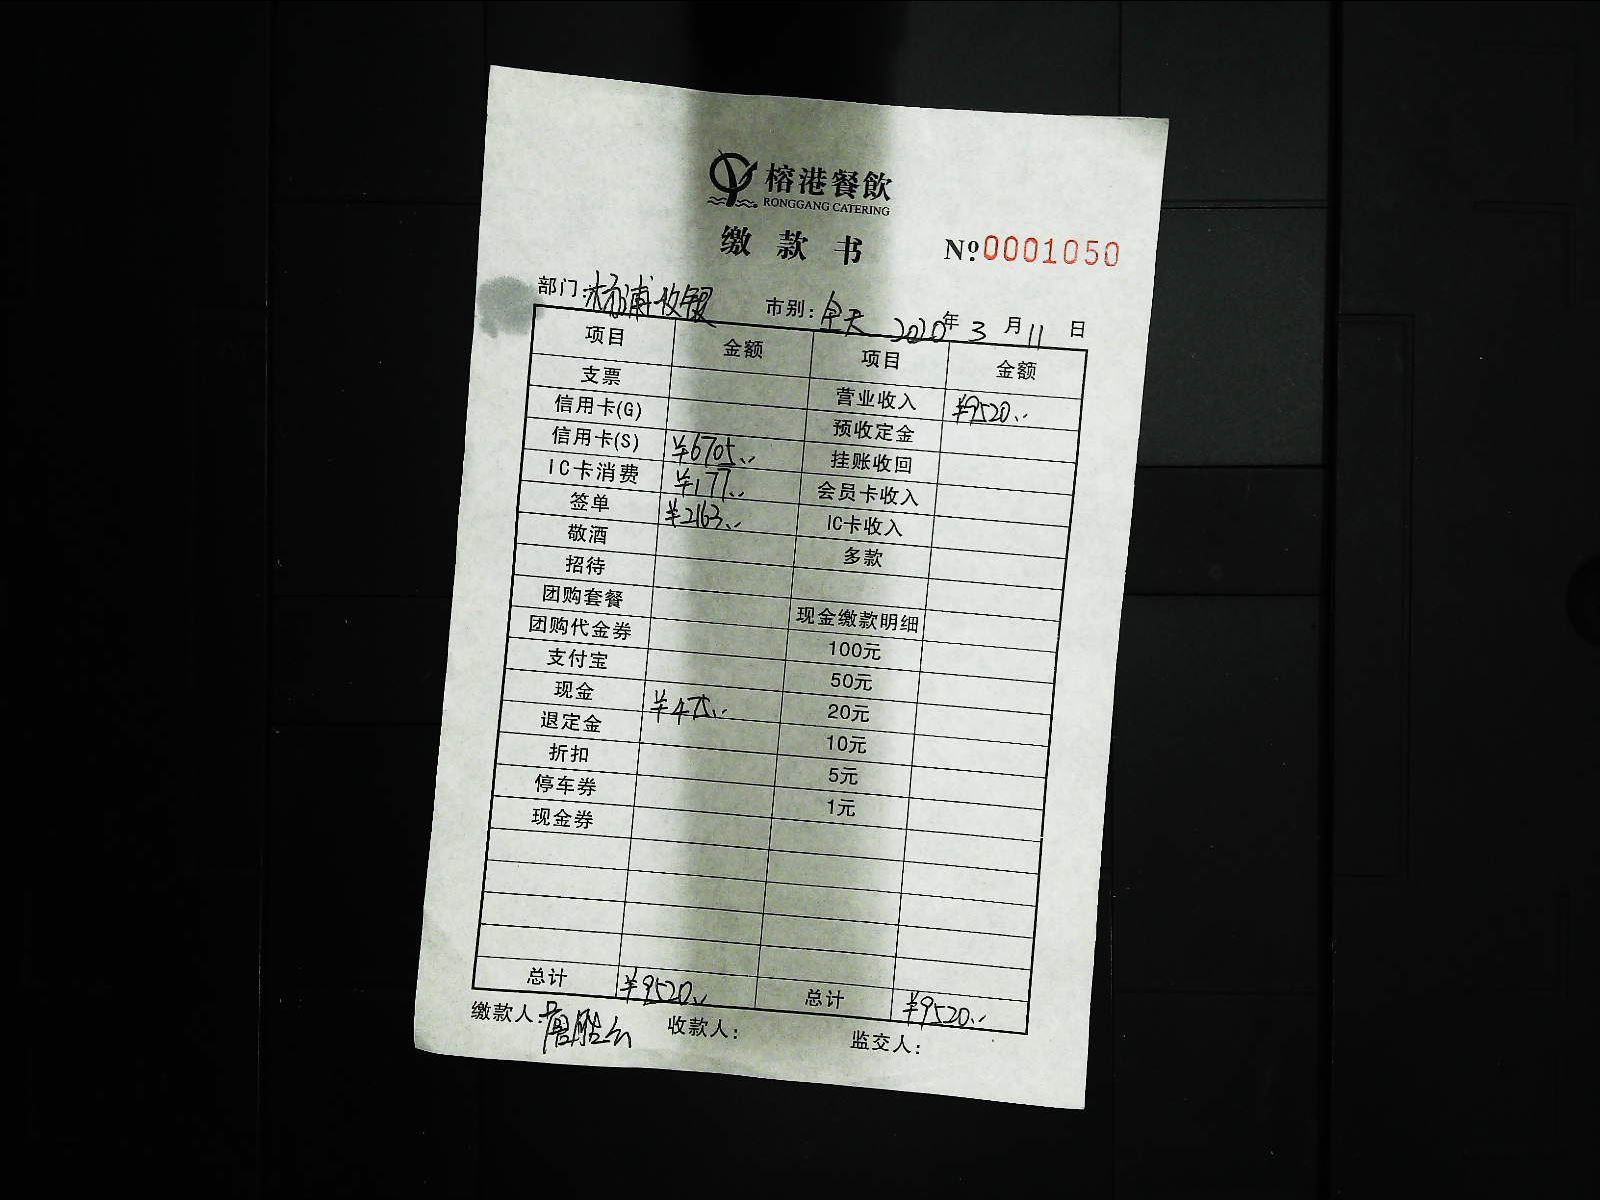 榕港餐飲
RONGGANG CATERING
缴款书 №0001050
部门:杨浦收银 市别:全天 2020年3月11日
项目 金额 项目 金额
支票 营业收入 ¥9520..
信用卡(G) 预收定金
信用卡(S) ¥6705.. 挂账收回
IC卡消费 ¥177.. 会员卡收入
签单 ¥2163.. IC卡收入
敬酒 多款
招待
团购套餐 现金缴款明细
团购代金券 100元
支付宝 50元
现金 ¥475.. 20元
退定金 10元
折扣 5元
停车券 1元
现金券
总计 ¥9520.. 总计 ¥9520..
缴款人: 收款人: 监交人: